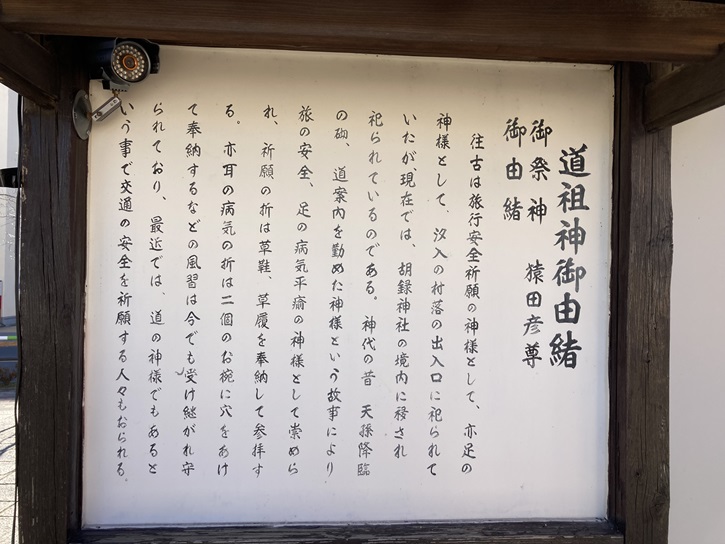 道祖神御由緒
御祭神　猿田彦尊
御由緒
往古は旅行安全祈願の神様として、亦足の
神様として、汐入の村落の出入口に祀られて
いたが現在では、胡録神社の境内に移され
祀られているのである。神代の昔　天孫降臨
の砌、道案内を勤めた神様という故事により
旅の安全、足の病気平癒の神様として崇めら
れ、祈願の折は草鞋、草履を奉納して参拝す
る。亦耳の病気の折は二個のお椀に穴をあけ
て奉納するなどの風習は今でも受け継がれ守
られており、最近では、道の神様でもあると
いう事で交通の安全を祈願する人々もおられる。